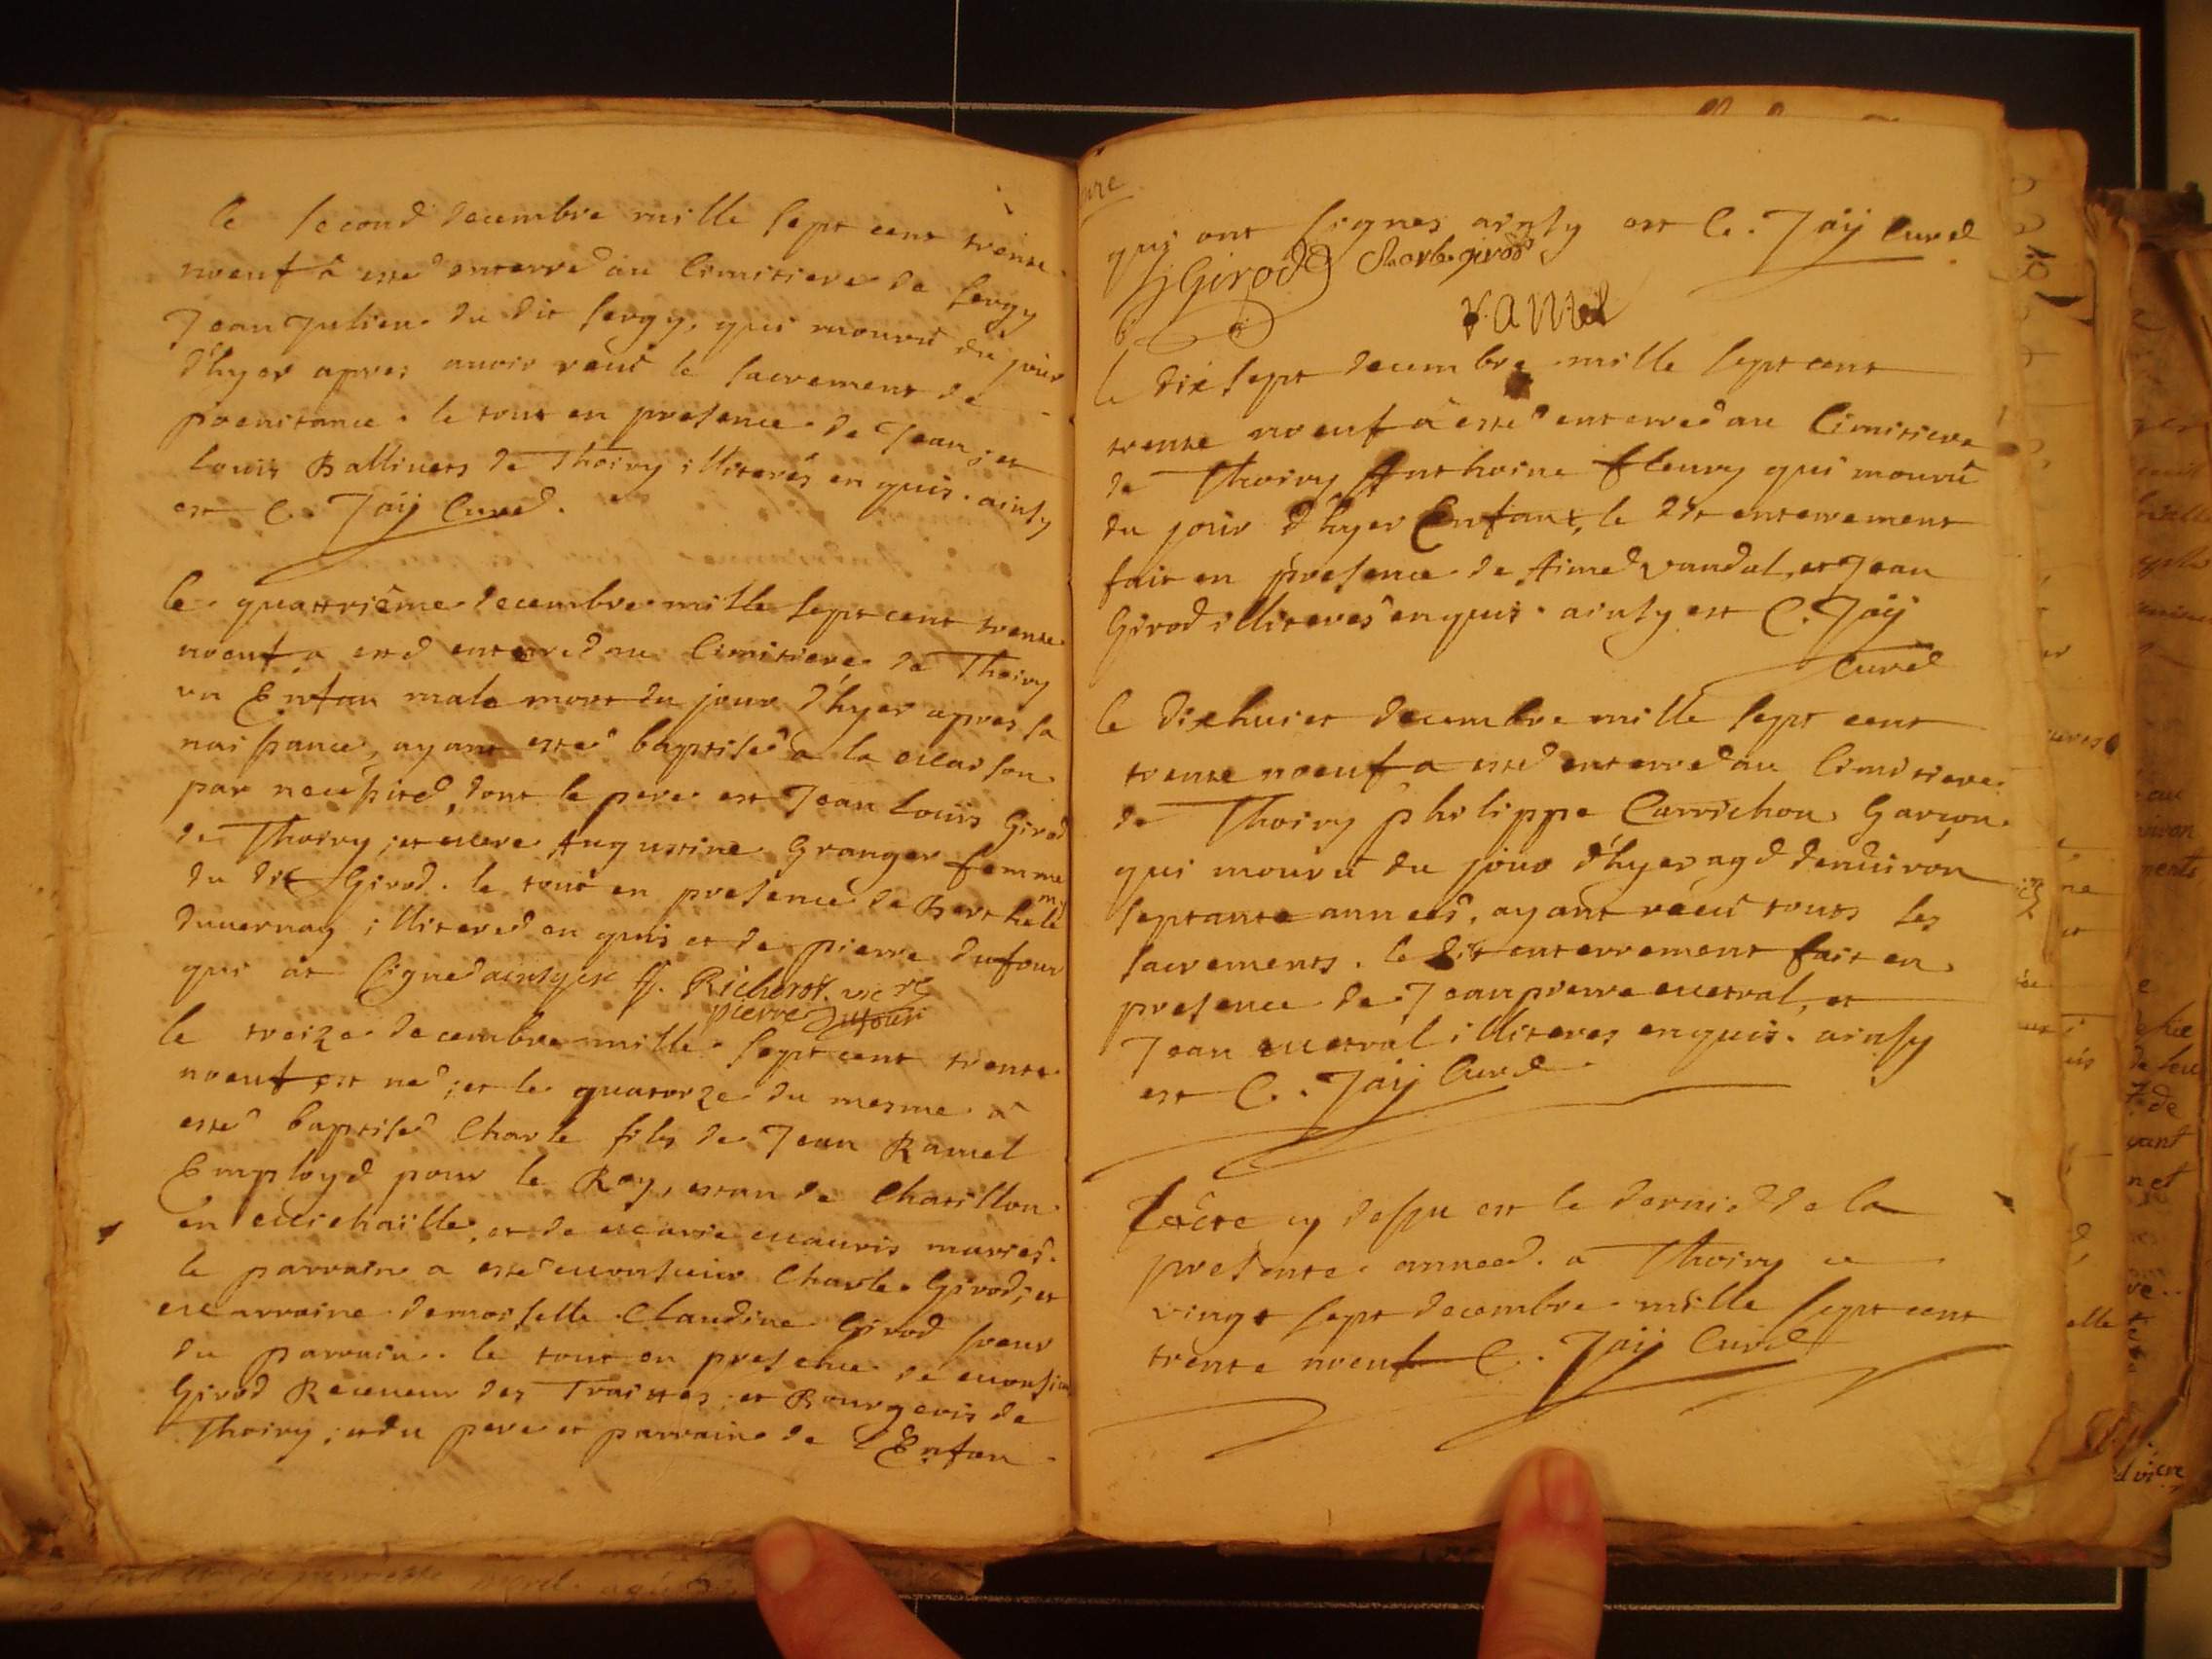 le second decembre mille sept cent trente
noeuf à esté enterré au Cimitiere de Sergy
Jean Julien du dit Sergy, qui mouru du jour
d'hyer apres avoir receu le sacrement de
poenitance. le tout en presence de Jean, et
Louis Ballivets de Thoiry illiterés enquis. ainsy
est C. Jaij Curé.
le quattriême decembre mille sept cent trente
noeuf a esté enterré au Cimitiere de Thoiry
un Enfan male mort du jour d'hyer apres sa
naissance, ayant esté baptisé a la Maison
par necessité, dont le pere est Jean Louis Girod
de Thoiry, et Mere Augustine Granger femme
du dit Girod. le tout en presence de Barthelemy
Duvernay illiteré enquis et de pierre dufour
qui at signé ainsy est ff. Richerot. vicre
pierre Dufour
le treize decembre mille sept cent trente
noeuf est né, et le quatorze du mesme a
esté baptisé Charle fils de Jean Ramel
Employé pour le Roy, estan de Chatillon
en Michaille, et de Marie Mauris mariés.
le parrain a esté Monsieur Charle Girod, et
Marraine demoiselle Claudine Girod soeur
du parrain. le tout en presence de Monsieur
Girod Receveur des Traittes, et Bourgeois de
Thoiry, et du pere et parrain de l'Enfan
qui ont signes ainsy est C. Jaij Curé
J Girod Charle girod
ramel
le dix sept decembre mille sept cent
trente noeuf a esté enterré au Cimitiere
de Thoiry Anthoine fleury qui mouru
du jour d'hyer Enfant, le dit enterrement
fait en presence de Aimé vandal, et Jean
Girod illiterés enquis. ainsy est C. Jaij
Curé
le dixhuict decembre mille sept cent
trente noeuf a esté enterré au Cimitiere
de Thoiry philippe Carrichon Garçon
qui mouru du jour d'hyer agé d'environ
septante années, ayant receu touts les
sacrements. le dit enterrement fait en
presence de Jean pierre Mestral, et
Jean Mestral illiteres enquis. ainsy
est C. Jaij Curé
L'acte cy dessu est le dernie de la
presente anneé. a Thoiry ce
vingt sept decembre mille sept cent
trente noeuf C. Jaij Curé